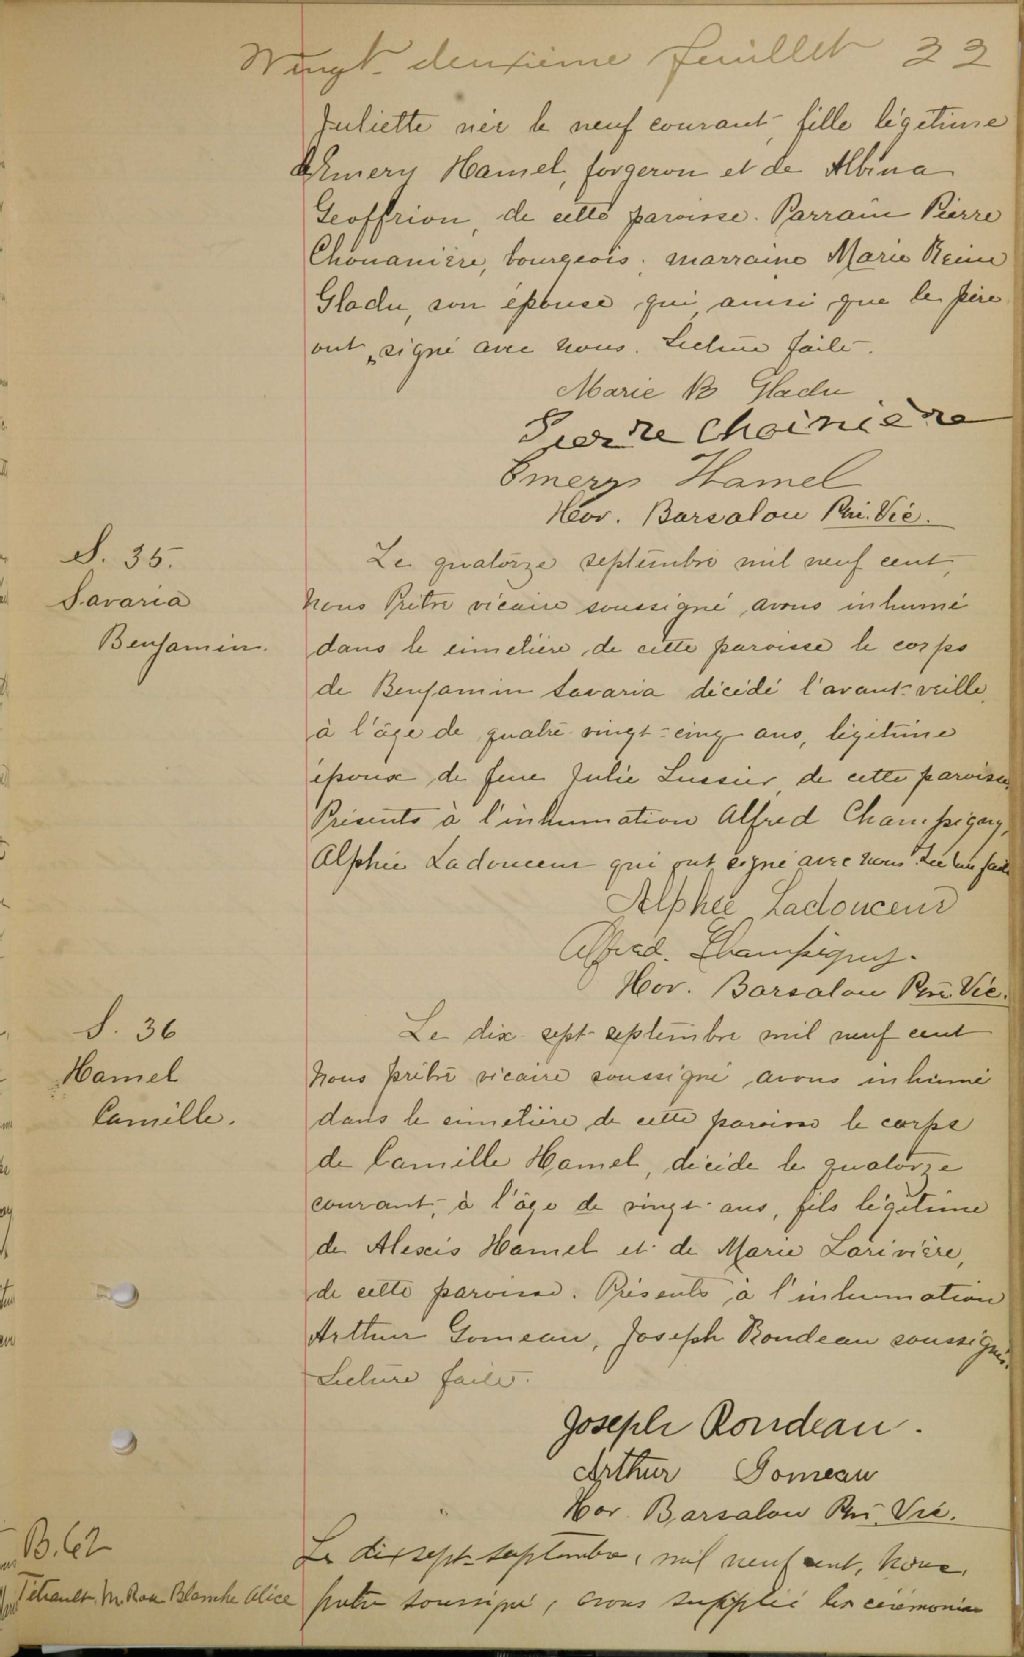 Vingt-deuxième feuillet 22
Juliette née le neuf courant, fille légitime
d'Emery Hamel, forgeron et de Albina
Geoffrion, de cette paroisse. Parrain Pierre
Chouanière, bourgeois, marraine Marie Reine
Gladu, son épouse qui, ainsi que le père
ont signé avec nous. Lecture faite.
Marie R Gladu
Pierre Choinière
Emery Hamel
Hor. Barsalou Ptre. Vic.
S. 35.
Savaria
Benjamin.
Le quatorze septembre mil neuf cent,
nous Prêtre vicaire soussigné, avons inhumé
dans le cimetière de cette paroisse le corps
de Benjamin Savaria décédé l'avant-veille,
à l'âge de quatre-vingt-cinq ans, légitime
époux de feue Julie Lussier, de cette paroisse.
Présents à l'inhumation Alfred Champigny,
Alphée Ladouceur qui ont signé avec nous. Lecture faite
Alphée Ladouceur
Alfred. Champigny.
Hor. Barsalou Ptre. Vic.
S. 36
Hamel
Camille.
Le dix-sept septembre mil neuf cent
nous prêtre vicaire soussigné, avons inhumé
dans le cimetière de cette paroisse le corps
de Camille Hamel, décédé le quatorze
courant, à l'âge de vingt ans, fils légitime
de Alexis Hamel et de Marie Larivière,
de cette paroisse. Présents à l'inhumation
Arthur Gomeau, Joseph Rondeau soussignés.
Lecture faite.
Joseph Rondeau.
Arthur Gomeau
Hor. Barsalou Ptre. Vic.
B. 62
Tétrault M. Rose Blanche Alice
Le dix sept-septembre, mil neuf cent, nous,
prêtre soussigné, avons suppléé les cérémonies